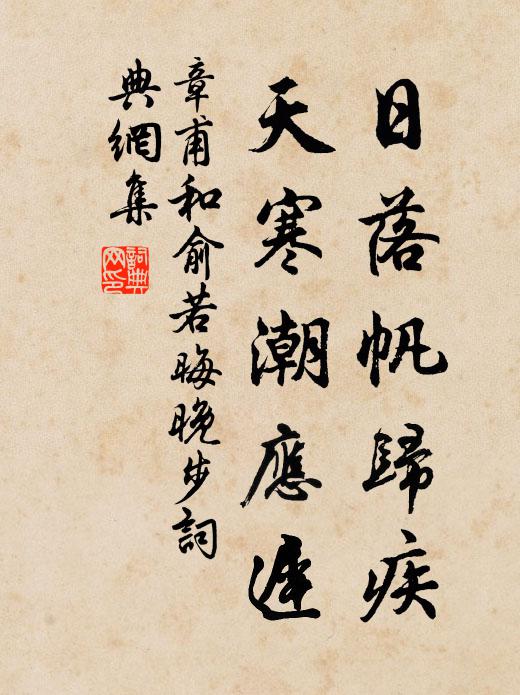 日落帆歸疾
天寒潮應遲
章甫和俞若晦晚步詞
典網集
詞典
网印